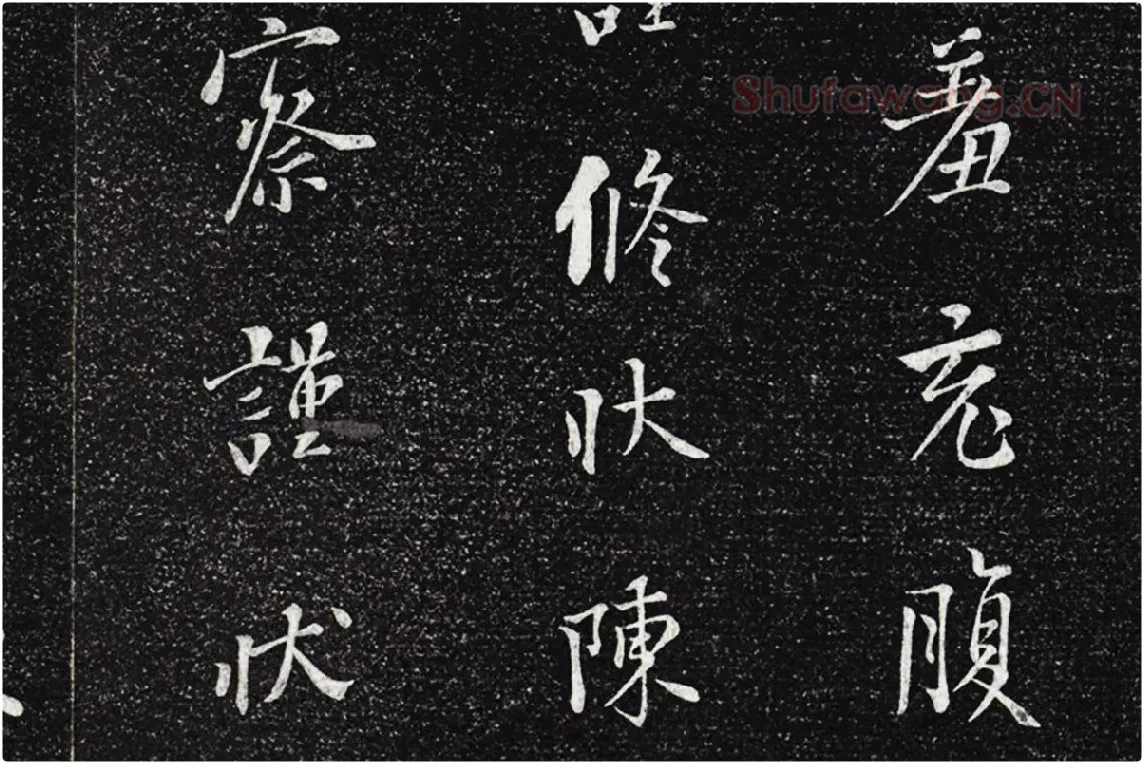 羞充腹
修狀陳
察謹狀
Shufawang.CN